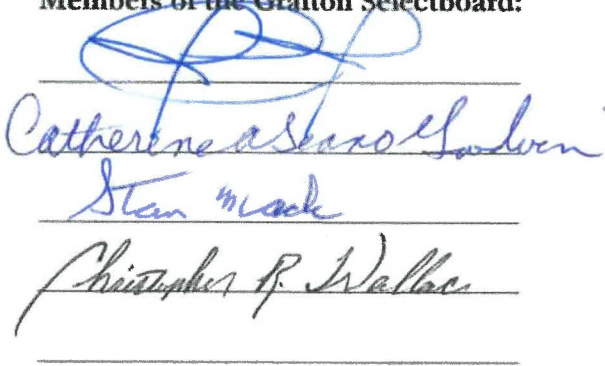 Members of the Grafton Selectboard:
Catherine A
Stan Mack
Christopher R. Wallac